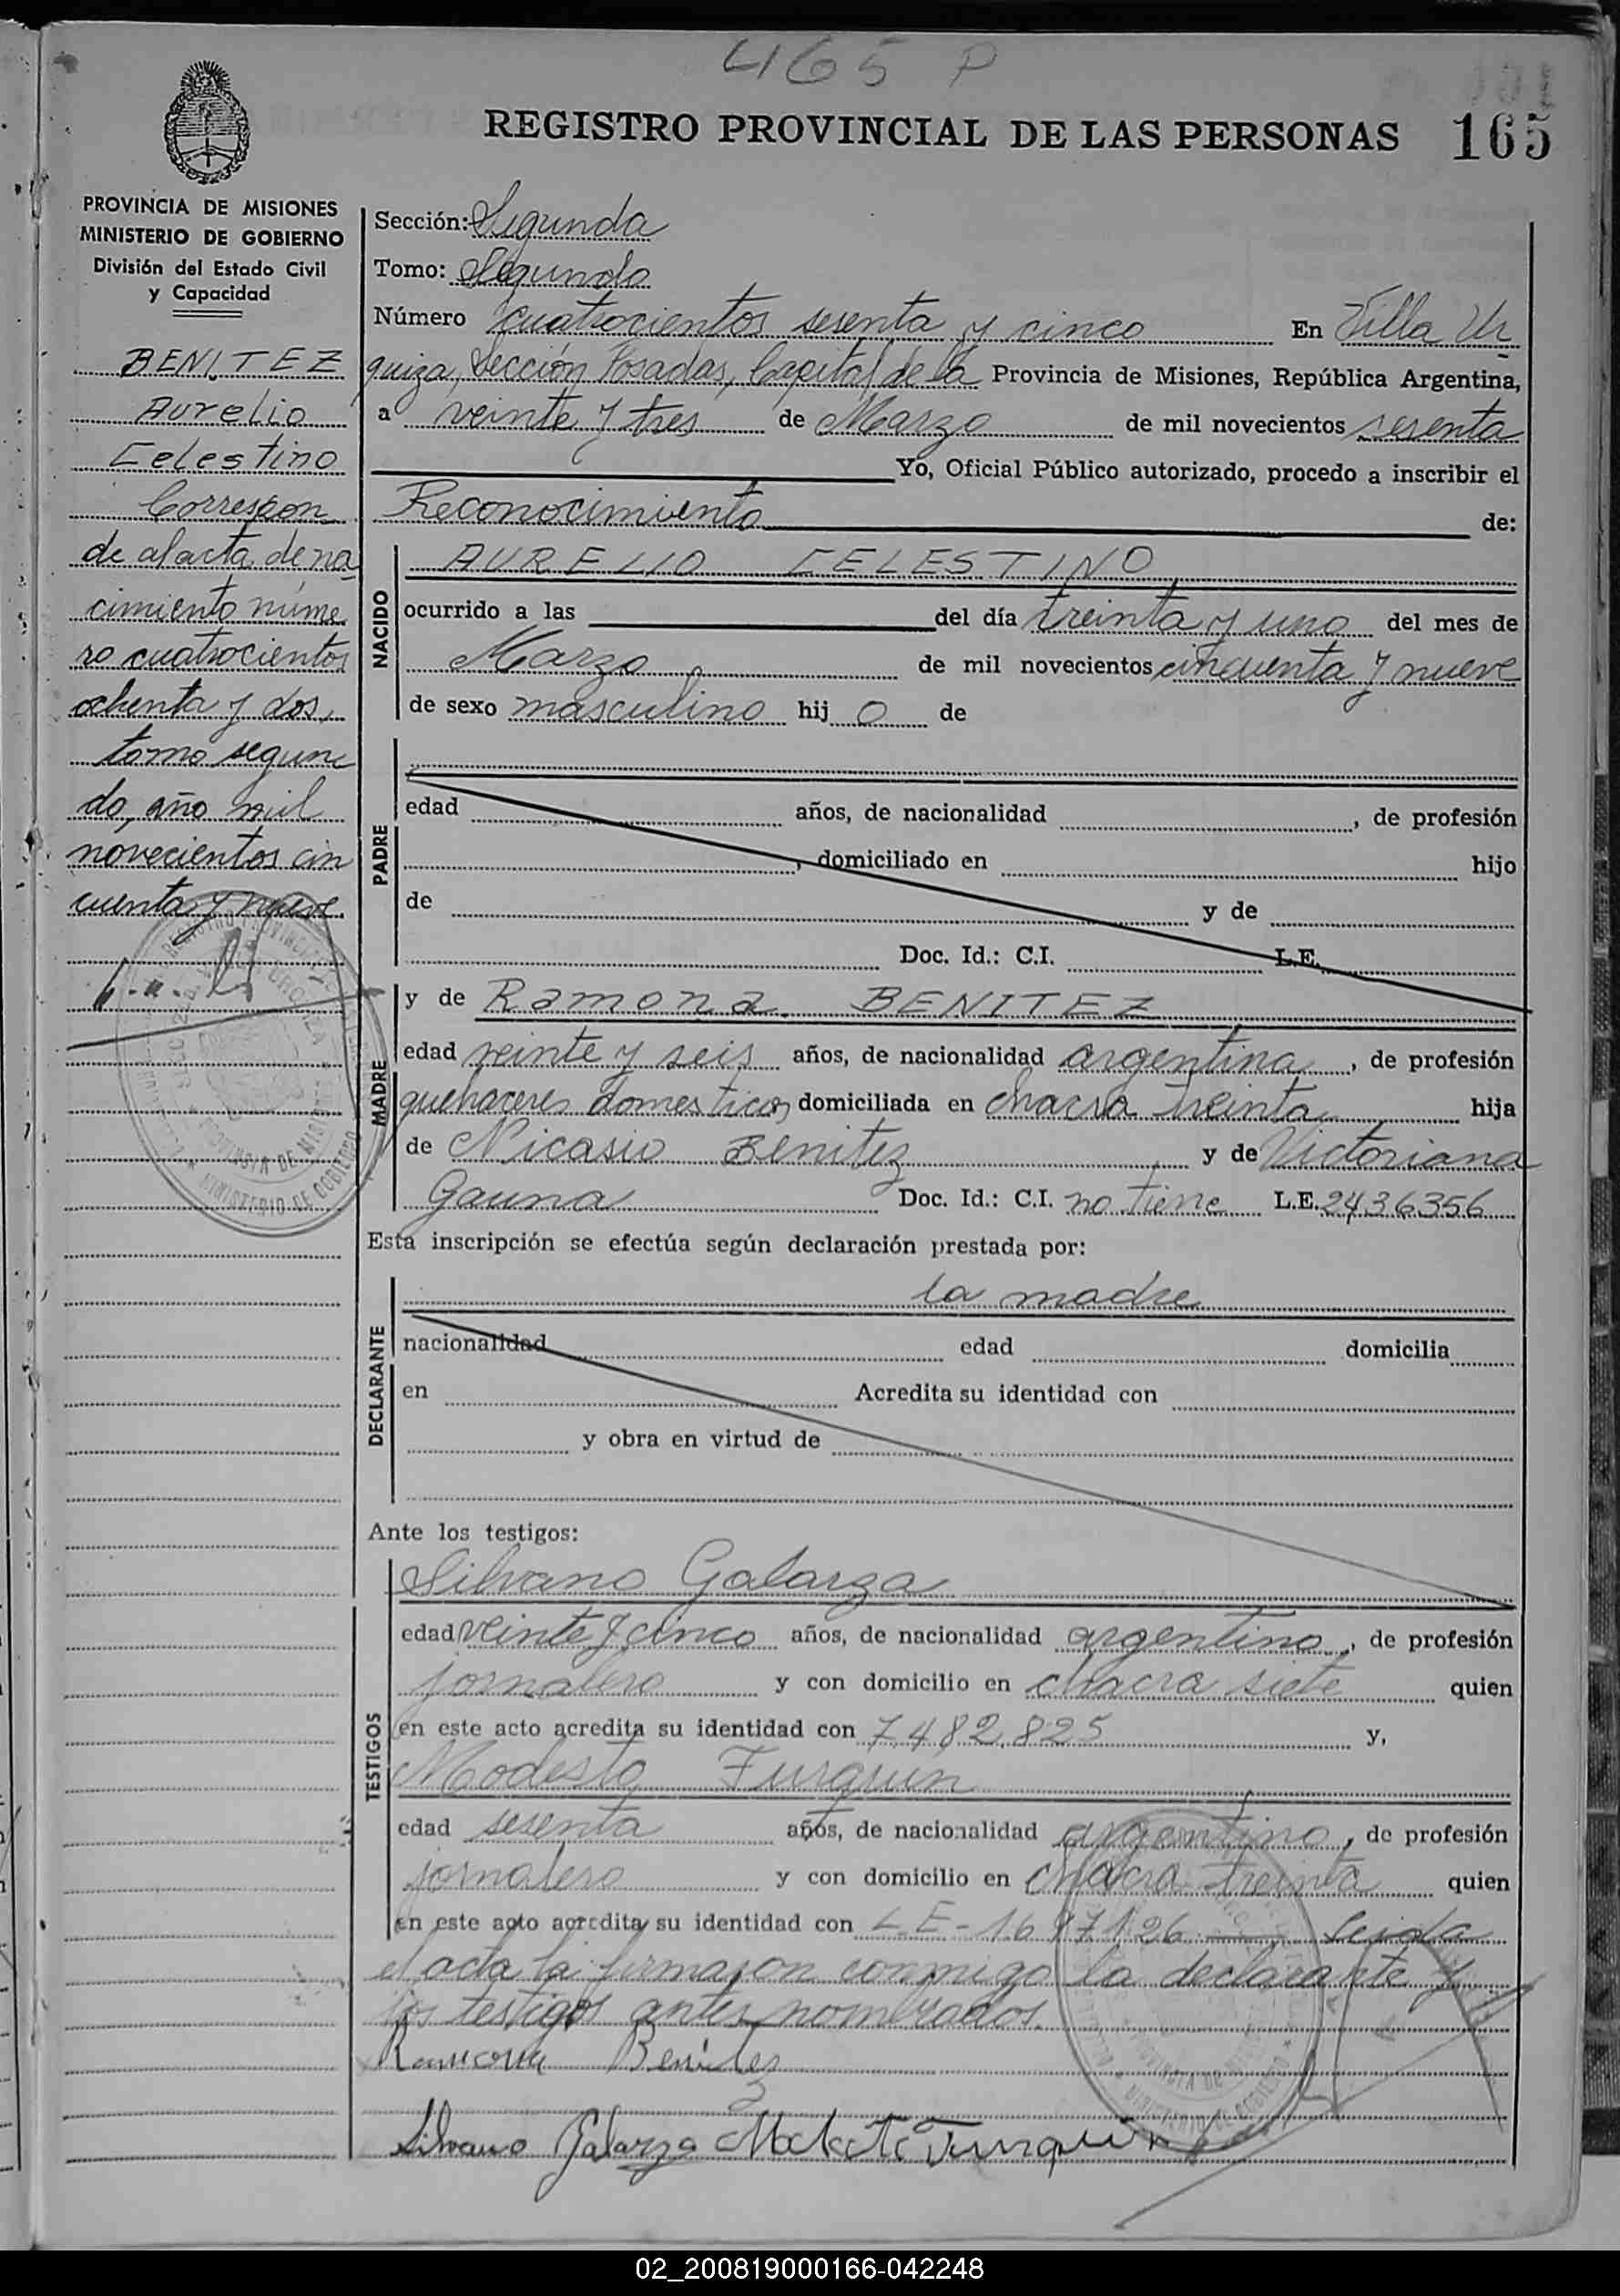 465 P
REGISTRO PROVINCIAL DE LAS PERSONAS 165
PROVINCIA DE MISIONES
MINISTERIO DE GOBIERNO
División del Estado Civil
y Capacidad
BENITEZ
Aurelio
Celestino
Correspon
de al acta de na
cimiento núme
ro cuatrocientos
ochenta y dos,
tomo segun
do, año mil
novecientos cin
cuenta y nueve.
Sección: Segunda
Tomo: Segundo
Número cuatrocientos sesenta y cinco En Villa Ur
quiza, Sección Posadas, Capital de la Provincia de Misiones, República Argentina,
a veinte y tres de Marzo de mil novecientos sesenta
Yo, Oficial Público autorizado, procedo a inscribir el
Reconocimiento de:
NACIDO
AURELIO CELESTINO
ocurrido a las del día treinta y uno del mes de
Marzo de mil novecientos cincuenta y nueve
de sexo masculino hij o de
PADRE
edad años, de nacionalidad , de profesión
, domiciliado en hijo
de y de
Doc. Id.: C.I. L.E.
MADRE
y de Ramona BENITEZ
edad veinte y seis años, de nacionalidad argentina, de profesión
quehaceres domesticos domiciliada en chacra treinta hija
de Nicasio Benitez y de Victoriana
Gauna Doc. Id.: C.I. no tiene L.E. 2436356
Esta inscripción se efectúa según declaración prestada por:
DECLARANTE
la madre
nacionalidad edad domicilia
en Acredita su identidad con
y obra en virtud de
Ante los testigos:
TESTIGOS
Silvano Galarza
edad veinte y cinco años, de nacionalidad argentino, de profesión
jornalero y con domicilio en chacra siete quien
en este acto acredita su identidad con 7.482.825 y,
Modesto Furquin
edad sesenta años, de nacionalidad argentino, de profesión
jornalero y con domicilio en chacra treinta quien
en este acto acredita su identidad con L E - 1697126 Leida
el acta la firmaron conmigo la declarante y
los testigos antes nombrados.
Ramona Benitez
Silvano Galarza Modesto Furquin
02_200819000166-042248